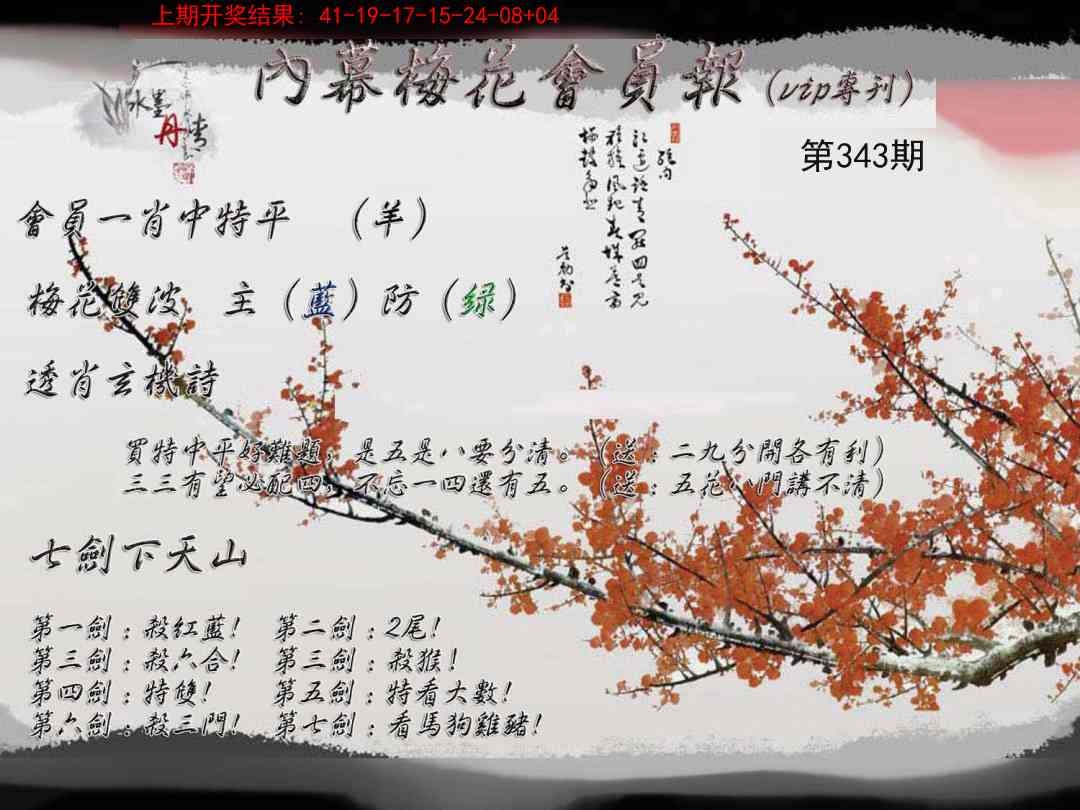 上期开奖结果：41-19-17-15-24-08+04
內幕梅花會員報（vip專刊）
水墨
丹青
第343期
會員一肖中特平 （羊）
梅花雙波 主（藍）防（绿）
透肖玄機詩
買特中平好難題，是五是八要分清。（送：二九分開各有利）
三三有望必配四，不忘一四還有五。（送：五花八門講不清）
七劍下天山
第一劍：殺红藍！ 第二劍：2尾！
第三劍：殺六合！ 第三劍：殺猴！
第四劍：特雙！ 第五劍：特看大數！
第六劍：殺三門！ 第七劍：看馬狗雞豬！